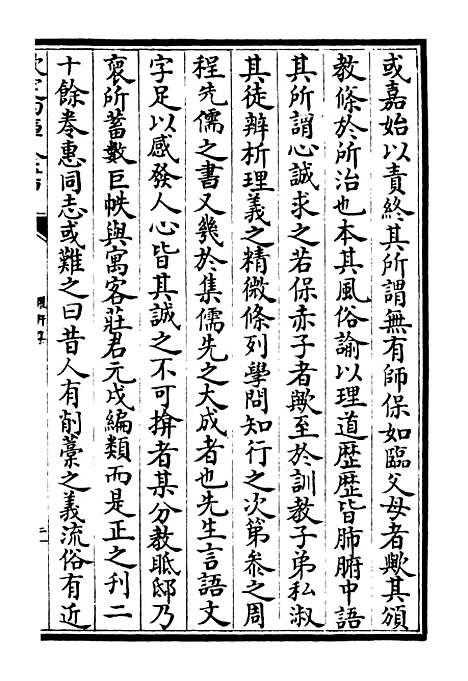 或嘉始以責終其所謂無有師保如臨父母者歟其頒
教條於所治也本其風俗諭以理道歴歴皆肺腑中語
其所謂心誠求之若保赤子者歟至於訓教子弟私淑
其徒辨析理義之精微條列學問知行之次第叅之周
程先儒之書又㡬於集儒先之大成者也先生言語文
字足以感發人心皆其誠之不可揜者某分教眂邸乃
裒所蓄數巨帙與寓客莊君元戍編類而是正之刊二
十餘卷惠同志或難之曰昔人有削藁之義流俗有近